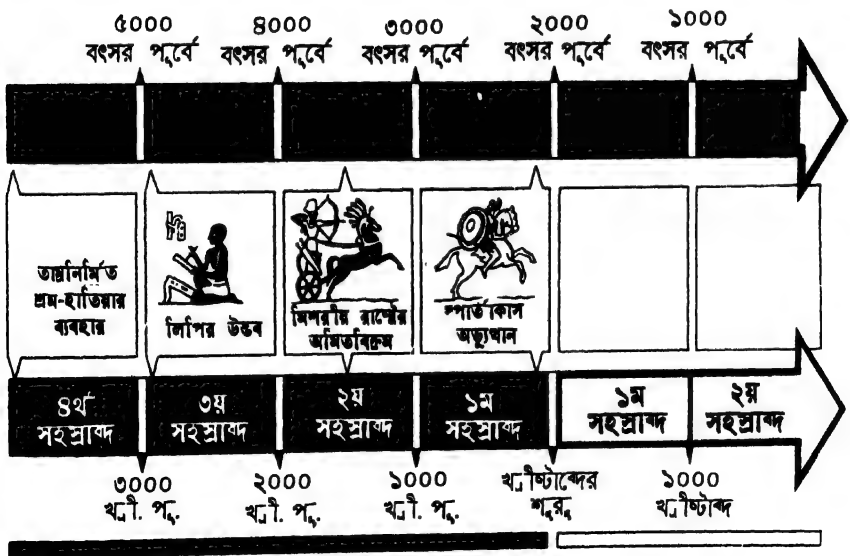 ৫০০০
বৎসর পূর্বে
৪০০০
বৎসর পূর্বে
৩০০০
বৎসর পূর্বে
২০০০
বৎসর পূর্বে
১০০০
বৎসর পূর্বে
তাম্রনির্মিত
শ্রম-হাতিয়ার
ব্যবহার
লিপির উদ্ভব
মিশরীয় রাষ্ট্রের
অমিতবিক্রম
স্পার্তাকাস
অভ্যুত্থান
৪র্থ
সহস্রাব্দ
৩য়
সহস্রাব্দ
২য়
সহস্রাব্দ
১ম
সহস্রাব্দ
১ম
সহস্রাব্দ
২য়
সহস্রাব্দ
৩০০০
খ্রী. পূ.
২০০০
খ্রী. পূ.
১০০০
খ্রী. পূ.
খ্রীষ্টাব্দের
শুরু
১০০০
খ্রীষ্টাব্দ